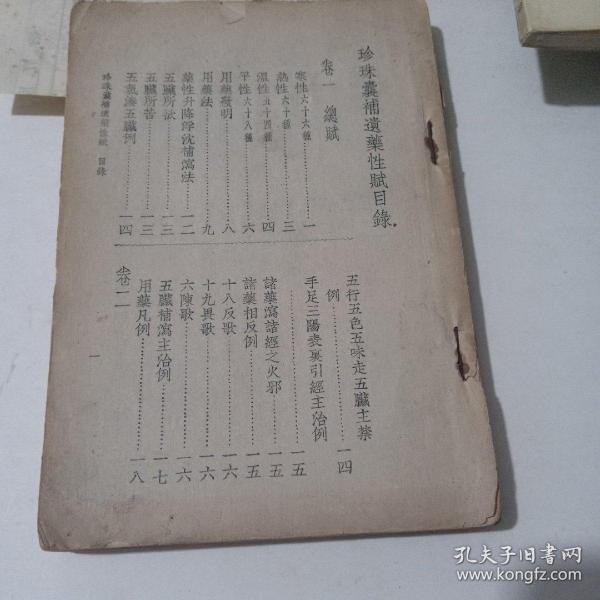 珍珠囊補遺藥性賦目錄
卷一 總賦
寒性六十六種……一
熱性六十種……三
溫性五十四種……四
平性六十八種……六
用藥發明……八
用藥法……九
藥性升降浮沈補瀉法……一二
五臟所欲……一三
五臟所苦……一三
五氣湊五臟例……一四
五行五色五味走五臟主禁
例……一四
手足三陽表裏引經主治例
……一五
諸藥瀉諸經之火邪……一五
諸藥相反例……一五
十八反歌……一六
十九畏歌……一六
六陳歌……一六
五臟補瀉主治例……一七
用藥凡例……一八
卷二
珍珠囊補遺藥性賦 目錄
一
孔夫子旧书网
www.kongfz.com